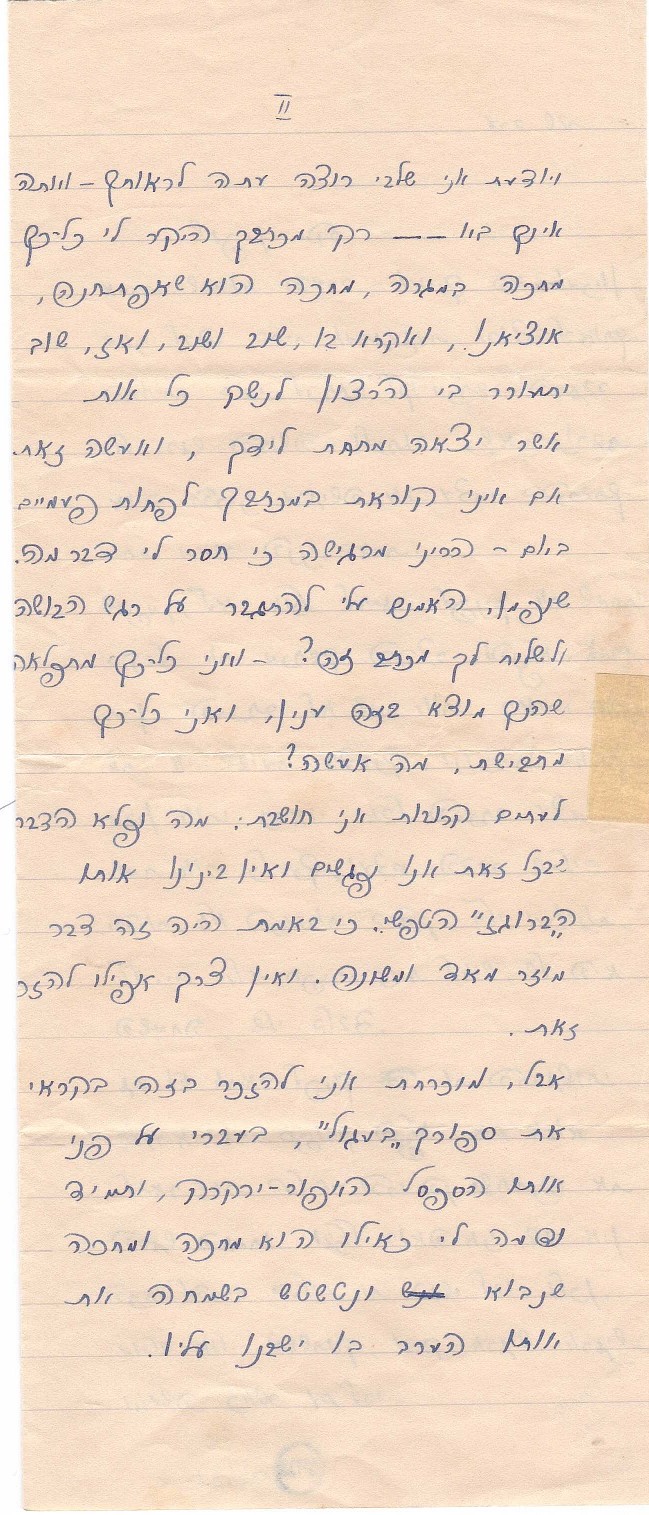 II
ויודעת אני שלבי רוצה עתה לראותך – ואתה
אינך בא —— רק מכתבך היקר לי כל-כך
מחכה במגרה, מחכה הוא שאפתחנה,
אוציאנו, ואקרא בו, שוב ושוב, ואז, שוב
יתעורר בי הרצון לנשק כל אות
אשר יצאה מתחת לידך, ואעשה זאת.
אם אינני קוראת במכתבך לפחות פעמיים
ביום – הריני מרגישה כי חסר לי דבר מה.
האמנם עלי להתגבר על רגש הבושה
ולשלוח לך מכתב זה? – ואני כל-כך מתפלאה
שהנך מוצא בזה ענין, ואני כל-כך
מתבישת, מה אעשה?
לעתים קרובות אני חושבת: מה נפלא הדבר
שבכל זאת אנו נפגשים ואין בינינו אותו
ה"ברוגז" הטפשי. כי באמת היה זה דבר
מוזר מאד ומשונה. ואין צרך אפילו להזכר
זאת.
אבל, מוכרחת אני להזכר בזה בקראי
את ספורך "בעגול", בעברי על פני
אותו הספסל האפור-ירקרק, ותמיד
נדמה לי כאילו הוא מחכה ומחכה
שנבוא ונטשטש בשמחה את
אותו הערב בו ישבנו עליו.